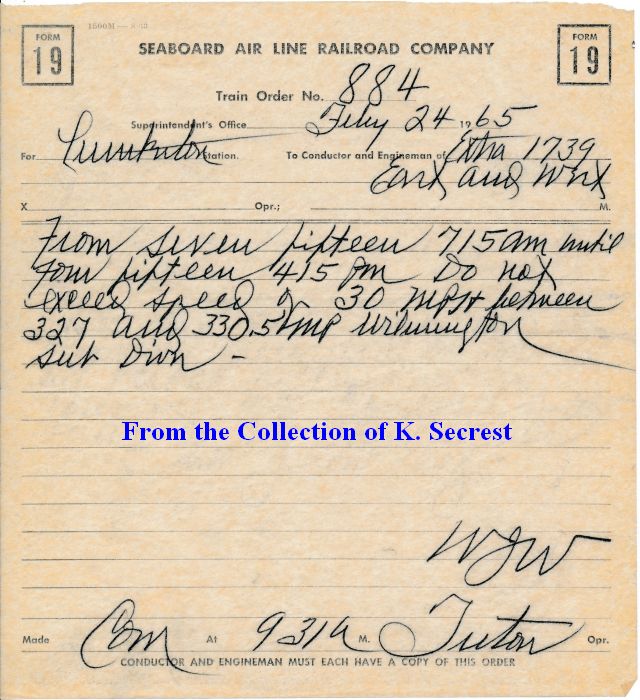 FORM 19
1500M—8-60
FORM 19
SEABOARD AIR LINE RAILROAD COMPANY
Train Order No. 884
Superintendent's Office Feby 24 1965
For Lumberton Station. To Conductor and Engineman of Extra 1739
East and West
X Opr.; M.
From seven fifteen 715 am until
four fifteen 415 pm Do not
exceed speed of 30 MPH between
327 and 330.5 MP Wilmington
Sub Divn -
From the Collection of K. Secrest
WJW
Made Com At 931 A M. Tuton Opr.
CONDUCTOR AND ENGINEMAN MUST EACH HAVE A COPY OF THIS ORDER